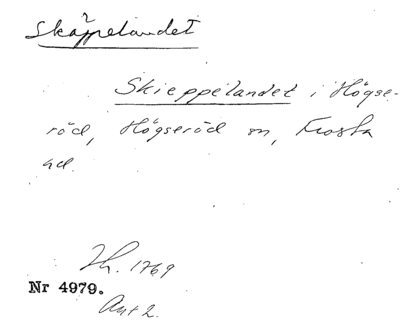 Skäppelandet
Skieppelandet i Högse-
röd, Högseröd sn, Frosta
hd.
Lh. 1769
Nr 4979.
Akt 2.